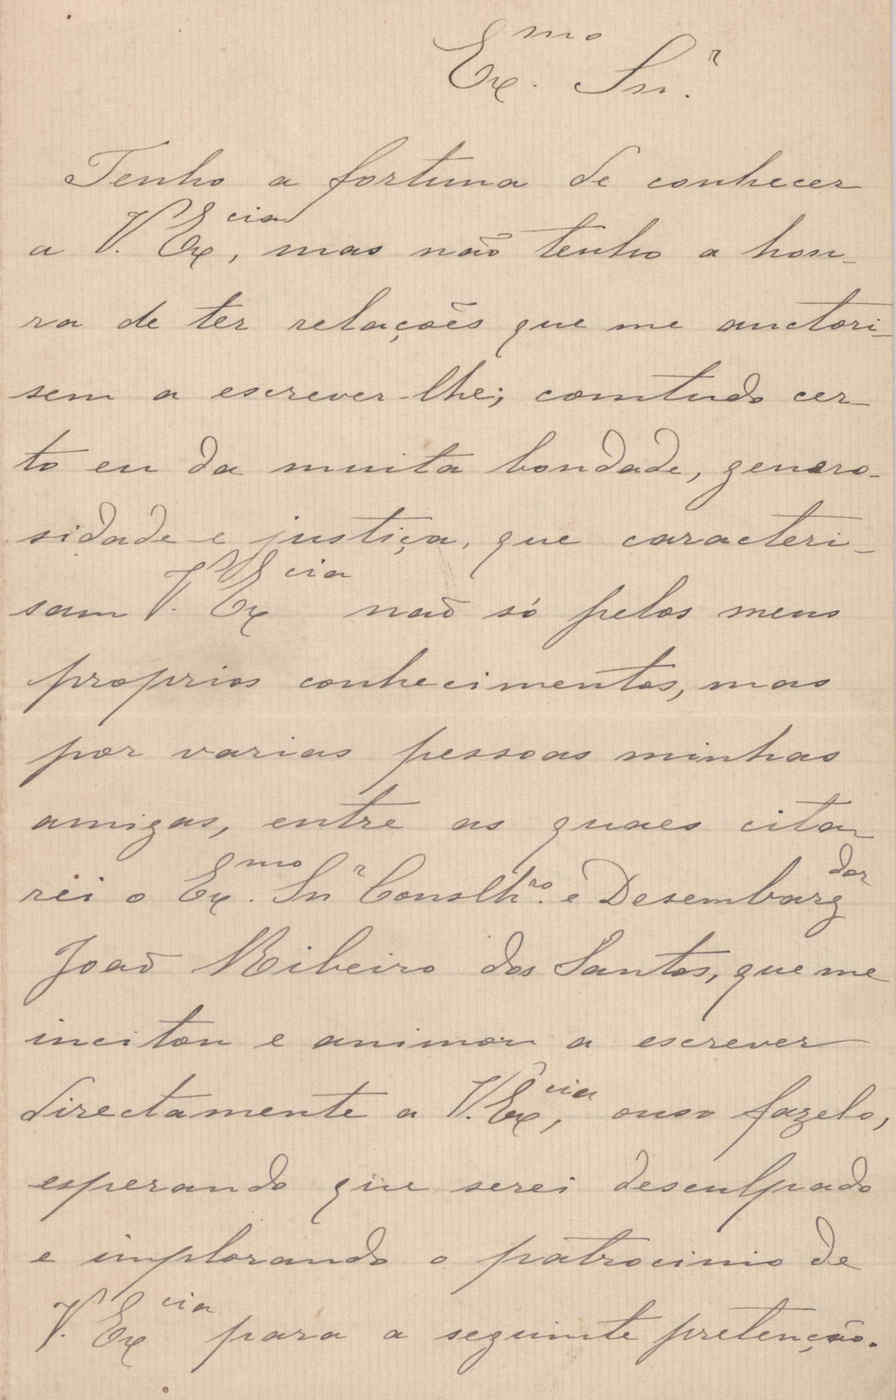 Ex.mo Snr.
Tenho a fortuna de conhecer
a V. Excia, mas não tenho a hon-
ra de ter relações que me auctori-
sem a escrever-lhe; comtudo cer
to eu da muita bondade, genero-
sidade e justiça, que caracteri-
sam V. Excia não só pelos meus
proprios conhecimentos, mas
por varias pessoas minhas
amigas, entre as quaes cita
rei o Ex.mo Snr Conslhro. e Desembargdor
João Ribeiro dos Santos, que me
incitou e animou a escrever
directamente a V. Excia, ouso fazelo,
esperando que serei desculpado
e implorando o patrocinio de
V. Excia para a seguinte pretenção.